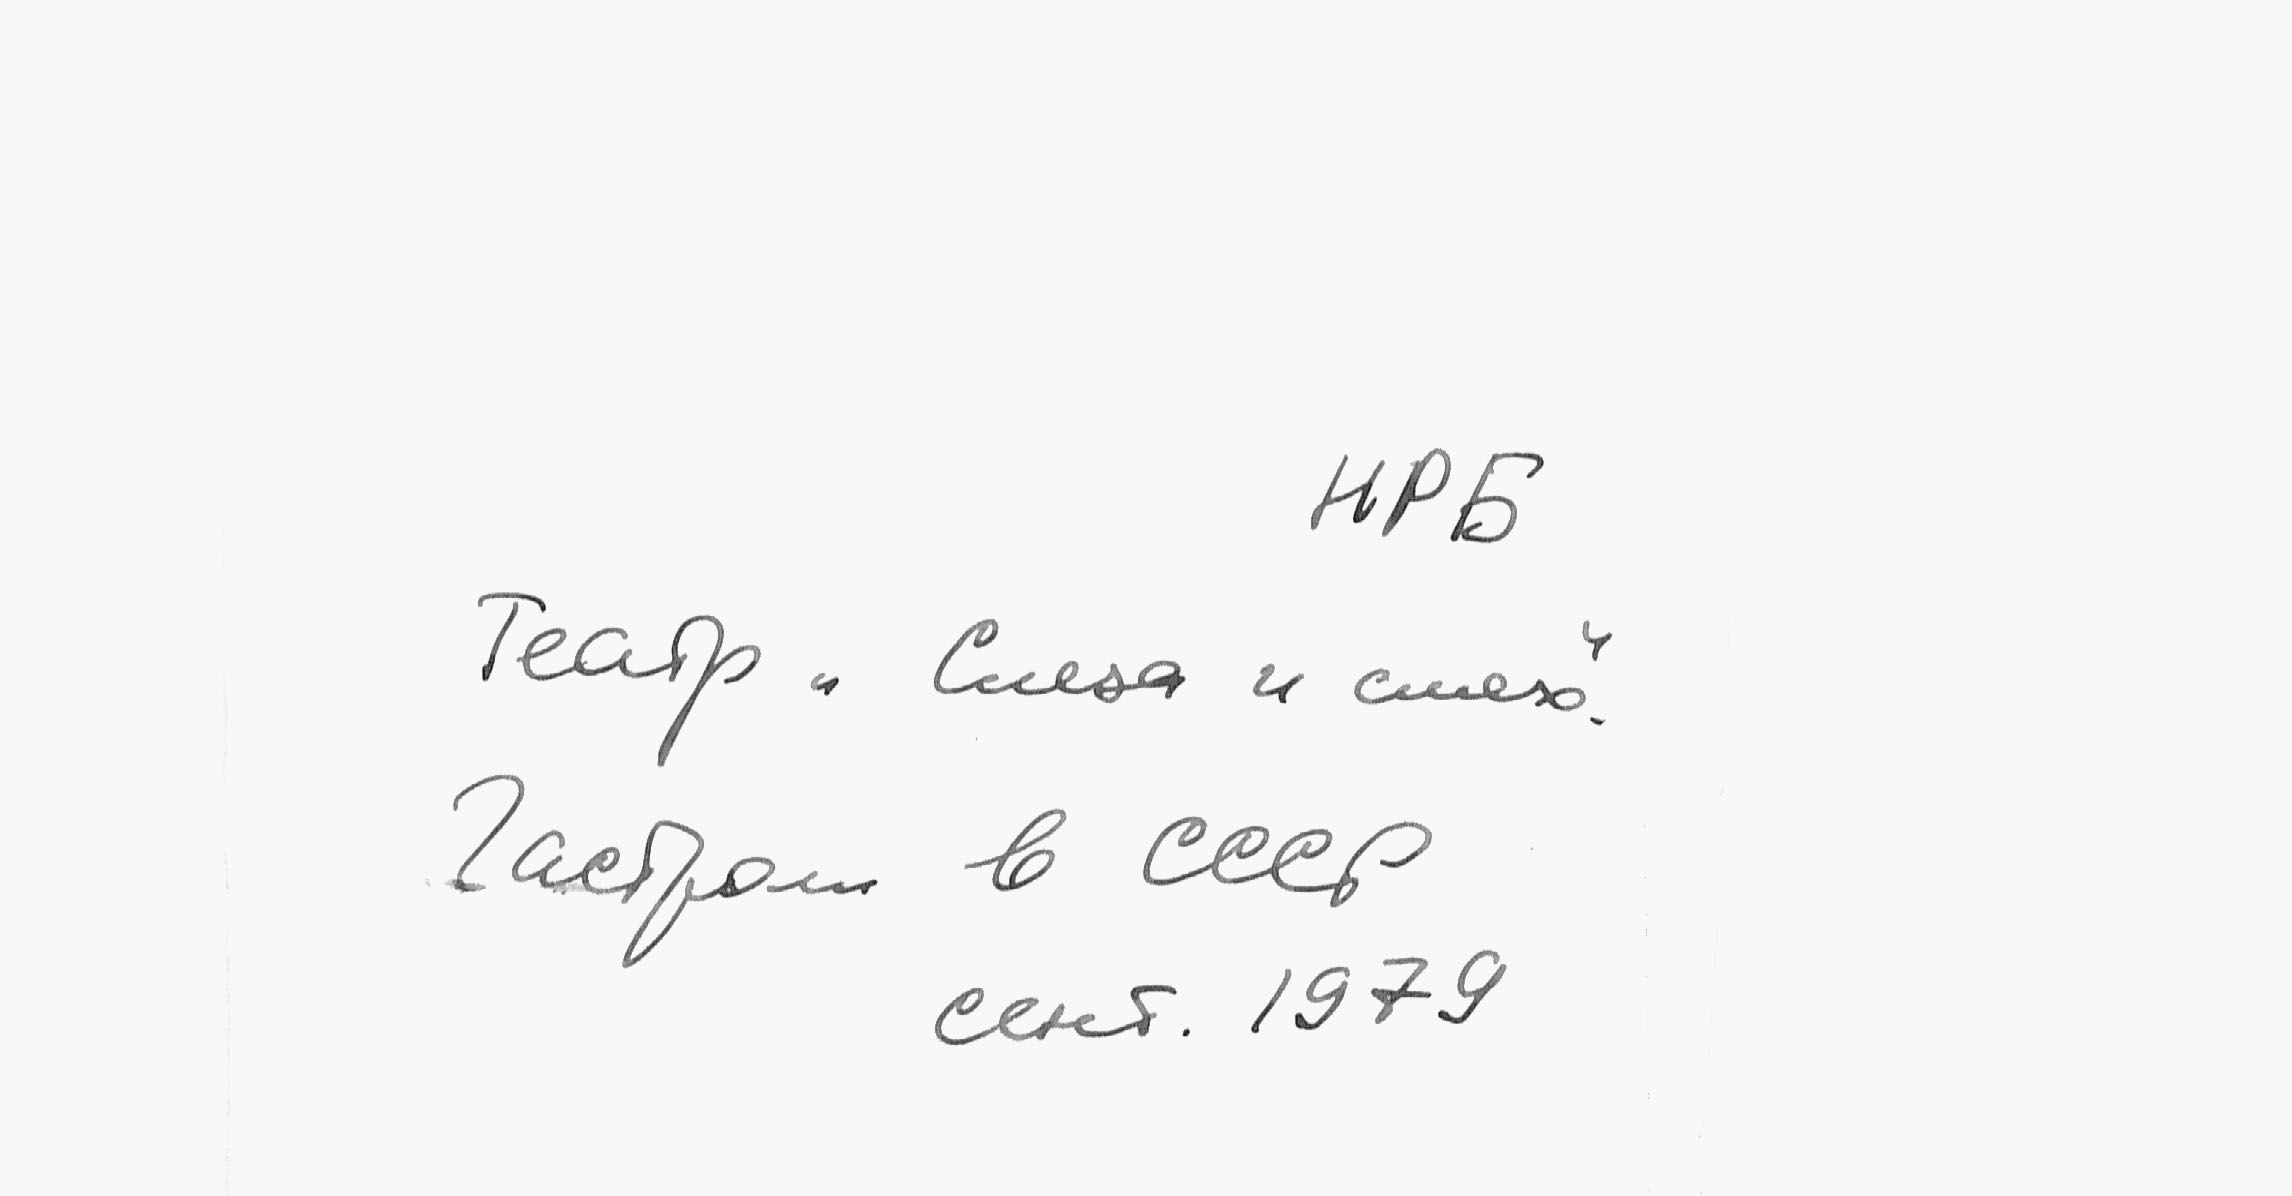 НРБ
Театр „Слеза и смех“.
Гастроли в СССР
сент. 1979